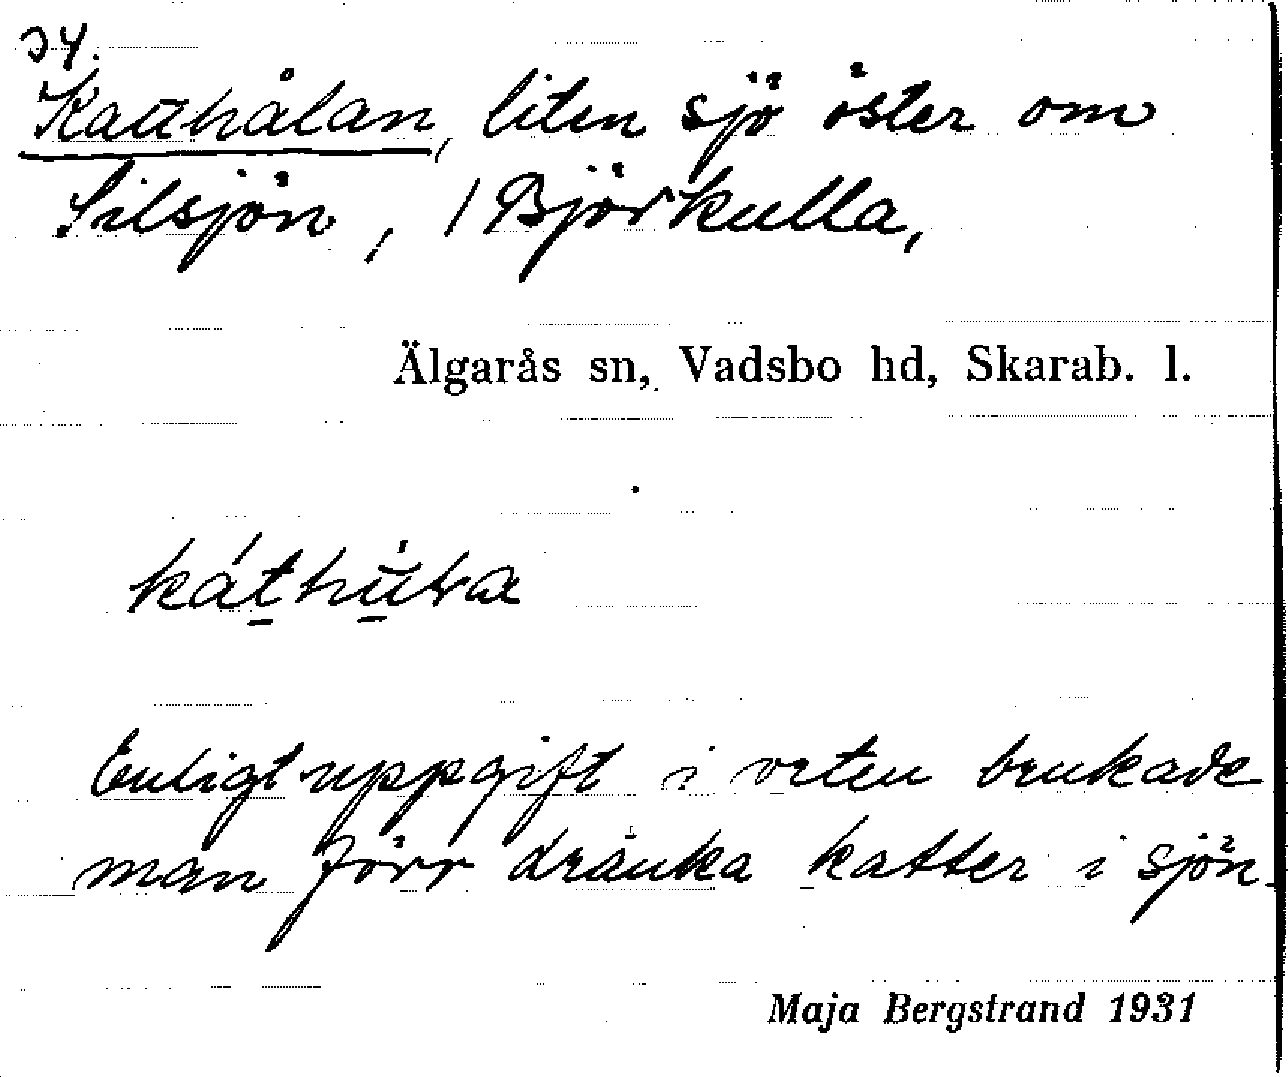 34.
Katthålan, liten sjö öster om
Silsjön, / Björkulla,
Älgarås sn, Vadsbo hd, Skarab. l.
Enligt uppgift i orten brukade
man förr dränka katter i sjön.
Maja Bergstrand 1931